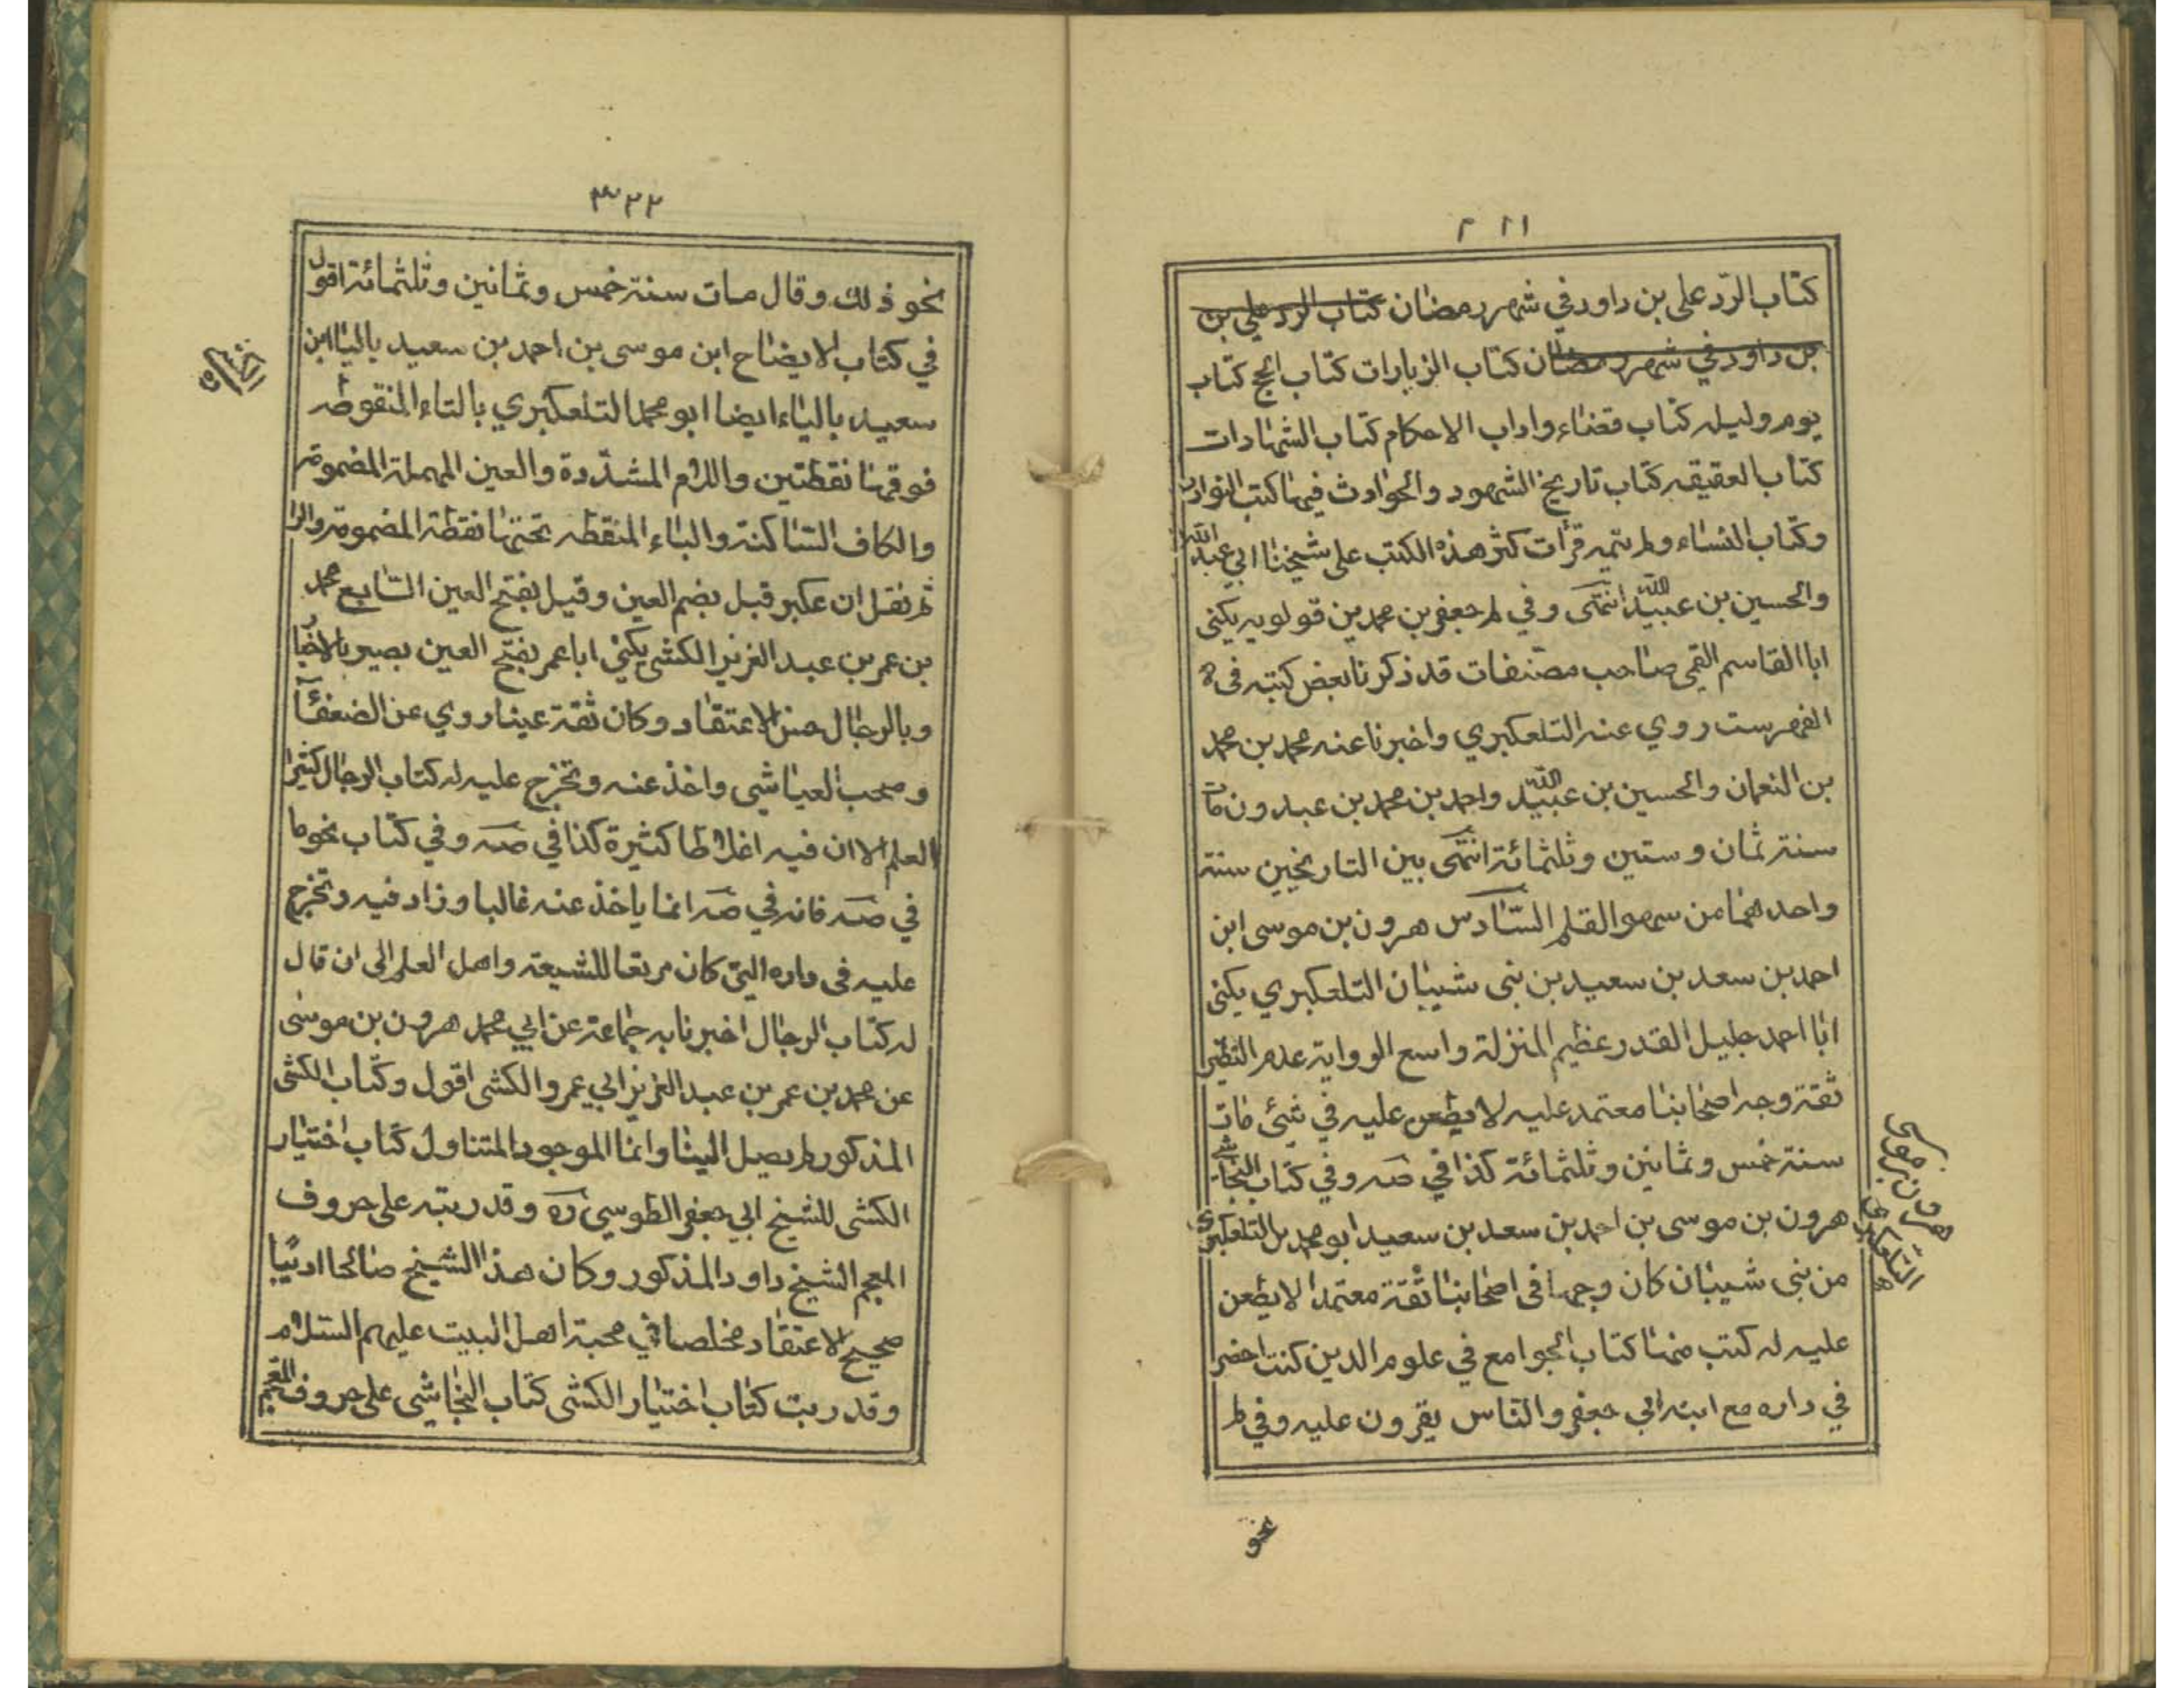 ٢٢١
كتاب الرد على بن داود في شهر رمضان كتاب الرد علي بن
بن داود في شهر رمضان كتاب الزيارات كتاب الحج كتاب
يوم وليله كتاب قضاء واداب الاحكام كتاب الشهادات
كتاب العقيقه كتاب تاريخ الشهور والحوادث فيها كتب النوادر
وكتاب النساء ولم يتمه قرأت كثر هذه الكتب على شيخنا ابي عبد الله
والحسين بن عبيد الله انتهى وفي لم جعفر بن محمد بن قولويه يكنى
ابا القاسم القمي صاحب مصنفات قد ذكرنا بعض كتبه في
الفهرست روي عنه التلعكبري واخبرنا عنه محمد بن محمد
بن النعمان والحسين بن عبيد الله واحمد بن محمد بن عبدون مات
سنة ثمان وستين وثلثمائة انتهى بين التاريخين سنة
واحدهما من سهو القلم السادس هرون بن موسى ابن
احمد بن سعد بن سعيد بن بنى شيبان التلعكبري يكنى
ابا احمد جليل القدر عظيم المنزلة واسع الرواية عدم النظير
ثقة وجه اصحابنا معتمد عليه لا يطعن عليه في شيئ مات
سنة خمس وثمانين وثلثمائة كذا في صه وفي كتاب النجاشي
هرون بن موسى بن احمد بن سعد بن سعيد ابو محمد التلعكبري
من بنى شيبان كان وجها في اصحابنا ثقة معتمدا لا يطعن
عليه له كتب منها كتاب الجوامع في علوم الدين كنت احضر
في داره مع ابنه ابي جعفر والناس يقرون عليه وفي لم
هرون بن موسى
التلعكبري
نحو
٣٢٢
نحو ذلك وقال مات سنة خمس وثمانين وثلثمائة اقول
في كتاب الايضاح ابن موسى بن احمد بن سعيد بالياء ابن
سعيد بالياء ايضا ابو محمد التلعكبري بالتاء المنقوطه
فوقها نقطتين واللام المشددة والعين المهملة المضمومة
والكاف الساكنة والباء المنقطه تحتها نقطة المضمومة والرا
ثم نقل ان عكبر قبل بضم العين وقيل بفتح العين السابع محمد
بن عمر بن عبد العزيز الكشي يكنى ابا عمر بفتح العين بصير بالاخبار
وبالرجال حسن الاعتقاد وكان ثقة عينا روي عن الضعفآء
وصحب العياشي واخذ عنه وتخرج عليه له كتاب الرجال كثير
العلم الا ان فيه اغلاطا كثيرة كذا في صه وفي كتاب نحو ما
في صه فانه في صه انما ياخذ عنه غالبا وزاد فيه وتخرج
عليه في داره التي كان مرتعا للشيعة واهل العلم الى ان قال
له كتاب الرجال اخبرنا به جماعة عن ابي محمد هرون بن موسى
عن محمد بن عمر بن عبد العزيز ابي عمرو الكشى اقول وكتاب الكشى
المذكور لم يصل الينا وانما الموجود المتناول كتاب اختيار
الكشى للشيخ ابي جعفر الطوسي ره وقد رتبه على حروف
المعجم الشيخ داود المذكور وكان هذا الشيخ صالحا اديبا
صحيح الاعتقاد مخلصا في محبة اهل البيت عليهم السلام
وقد رتب كتاب اختيار الكشى كتاب النجاشي على حروف المعجم